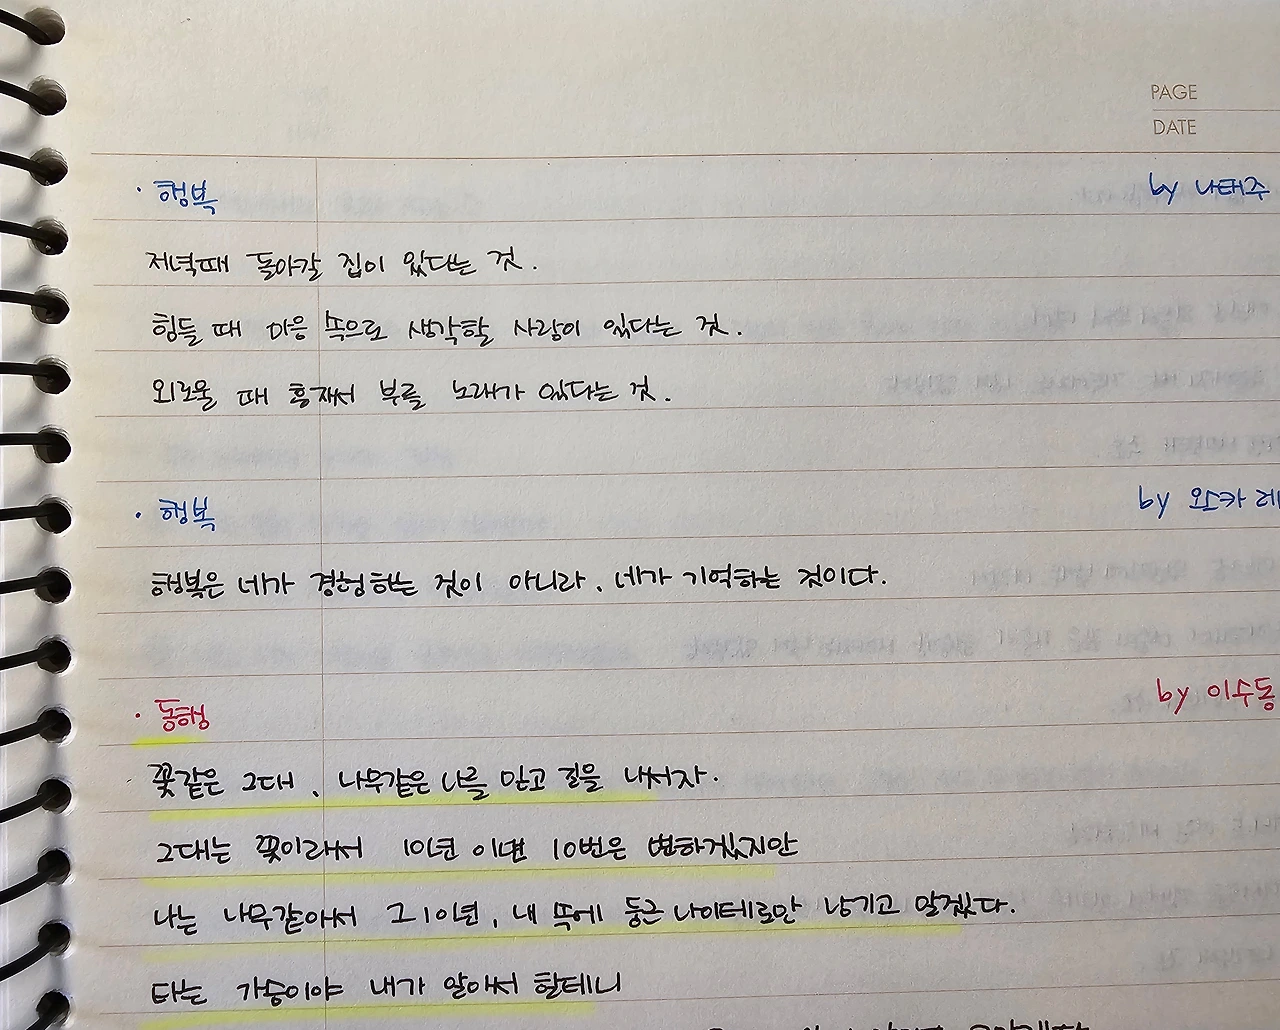 PAGE
DATE
· 행복 by 나태주
저녁때 돌아갈 집이 있다는 것.
힘들 때 마음 속으로 생각할 사람이 있다는 것.
외로울 때 혼자서 부를 노래가 있다는 것.
· 행복 by 오스카 레
행복은 네가 경험하는 것이 아니라, 네가 기억하는 것이다.
· 동행 by 이수동
꽃같은 그대, 나무같은 나를 믿고 길을 나서자.
그대는 꽃이라서 10년 이면 10번은 변하겠지만
나는 나무같아서 그 10년, 내 속에 둥근 나이테로만 남기고 말겠다.
타는 가슴이야 내가 알아서 할테니